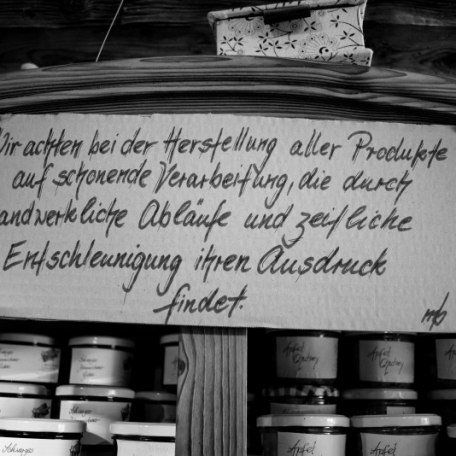 Wir achten bei der Herstellung aller Produkte
auf schonende Verarbeitung, die durch
handwerkliche Abläufe und zeitliche
Entschleunigung ihren Ausdruck
findet.
Apfel
Chutney
Apfel
Chutney
Apfel
Apfel